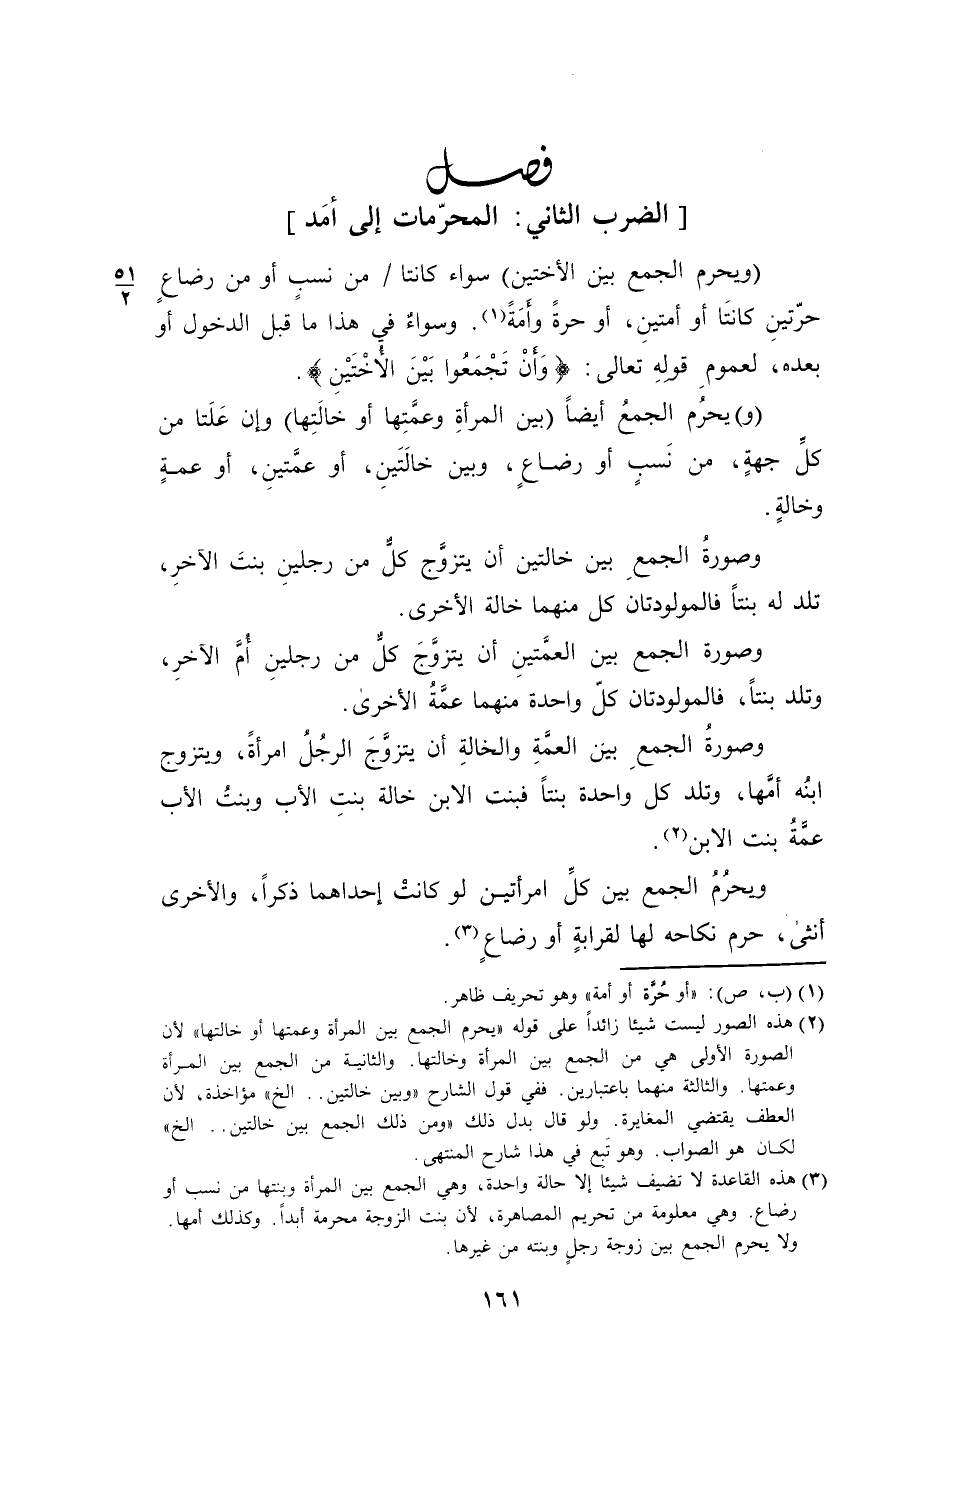 فصل
[ الضرب الثاني: المحرّمات إلى أمَد ]
(ويحرم الجمع بين الأختين) سواء كانتا / من نسبٍ أو من رضاعٍ
٥١
٢
حرّتينِ كانتَا أو أمتينِ، أو حرةً وأَمَةً(١). وسواءٌ في هذا ما قبل الدخول أو
بعده، لعمومِ قولِهِ تعالى: ﴿وَأَنْ تَجْمَعُوا بَيْنَ الْأُخْتَيْنِ﴾.
(و)يحرُم الجمعُ أيضاً (بين المرأةِ وعمَّتِها أو خالَتِها) وإن عَلَتا من
كلِّ جهةٍ، من نَسبٍ أو رضاعٍ، وبين خالَتَينِ، أو عمَّتينِ، أو عمةٍ
وخالةٍ.
وصورةُ الجمعِ بين خالتين أن يتزوَّج كلٌّ من رجلينِ بنتَ الآخرِ،
تلد له بنتاً فالمولودتان كل منهما خالة الأخرى.
وصورة الجمع بين العمَّتينِ أن يتزوَّجَ كلٌّ من رجلينِ أُمَّ الآخرِ،
وتلد بنتاً، فالمولودتان كلّ واحدة منهما عمَّةُ الأخرىٰ.
وصورةُ الجمعِ بين العمَّةِ والخالةِ أن يتزوَّجَ الرجُلُ امرأةً، ويتزوج
ابنُه أمَّها، وتلد كل واحدة بنتاً فبنت الابن خالة بنتِ الأب وبنتُ الأب
عمَّةُ بنت الابن(٢).
ويحرُمُ الجمع بين كلِّ امرأتين لو كانتْ إحداهما ذكراً، والأخرى
أنثىٰ، حرم نكاحه لها لقرابةٍ أو رضاعٍ(٣).
(١) (ب، ص): «أو حُرَّة أو أمة» وهو تحريف ظاهر.
(٢) هذه الصور ليست شيئا زائداً على قوله «يحرم الجمع بين المرأة وعمتها أو خالتها» لأن
الصورة الأولى هي من الجمع بين المرأة وخالتها. والثانية من الجمع بين المرأة
وعمتها. والثالثة منهما باعتبارين. ففي قول الشارح «وبين خالتين.. الخ» مؤاخذة، لأن
العطف يقتضي المغايرة. ولو قال بدل ذلك «ومن ذلك الجمع بين خالتين.. الخ»
لكان هو الصواب. وهو تَبِع في هذا شارح المنتهى.
(٣) هذه القاعدة لا تضيف شيئا إلا حالة واحدة، وهي الجمع بين المرأة وبنتها من نسب أو
رضاع. وهي معلومة من تحريم المصاهرة، لأن بنت الزوجة محرمة أبداً. وكذلك أمها.
ولا يحرم الجمع بين زوجة رجلٍ وبنته من غيرها.
١٦١